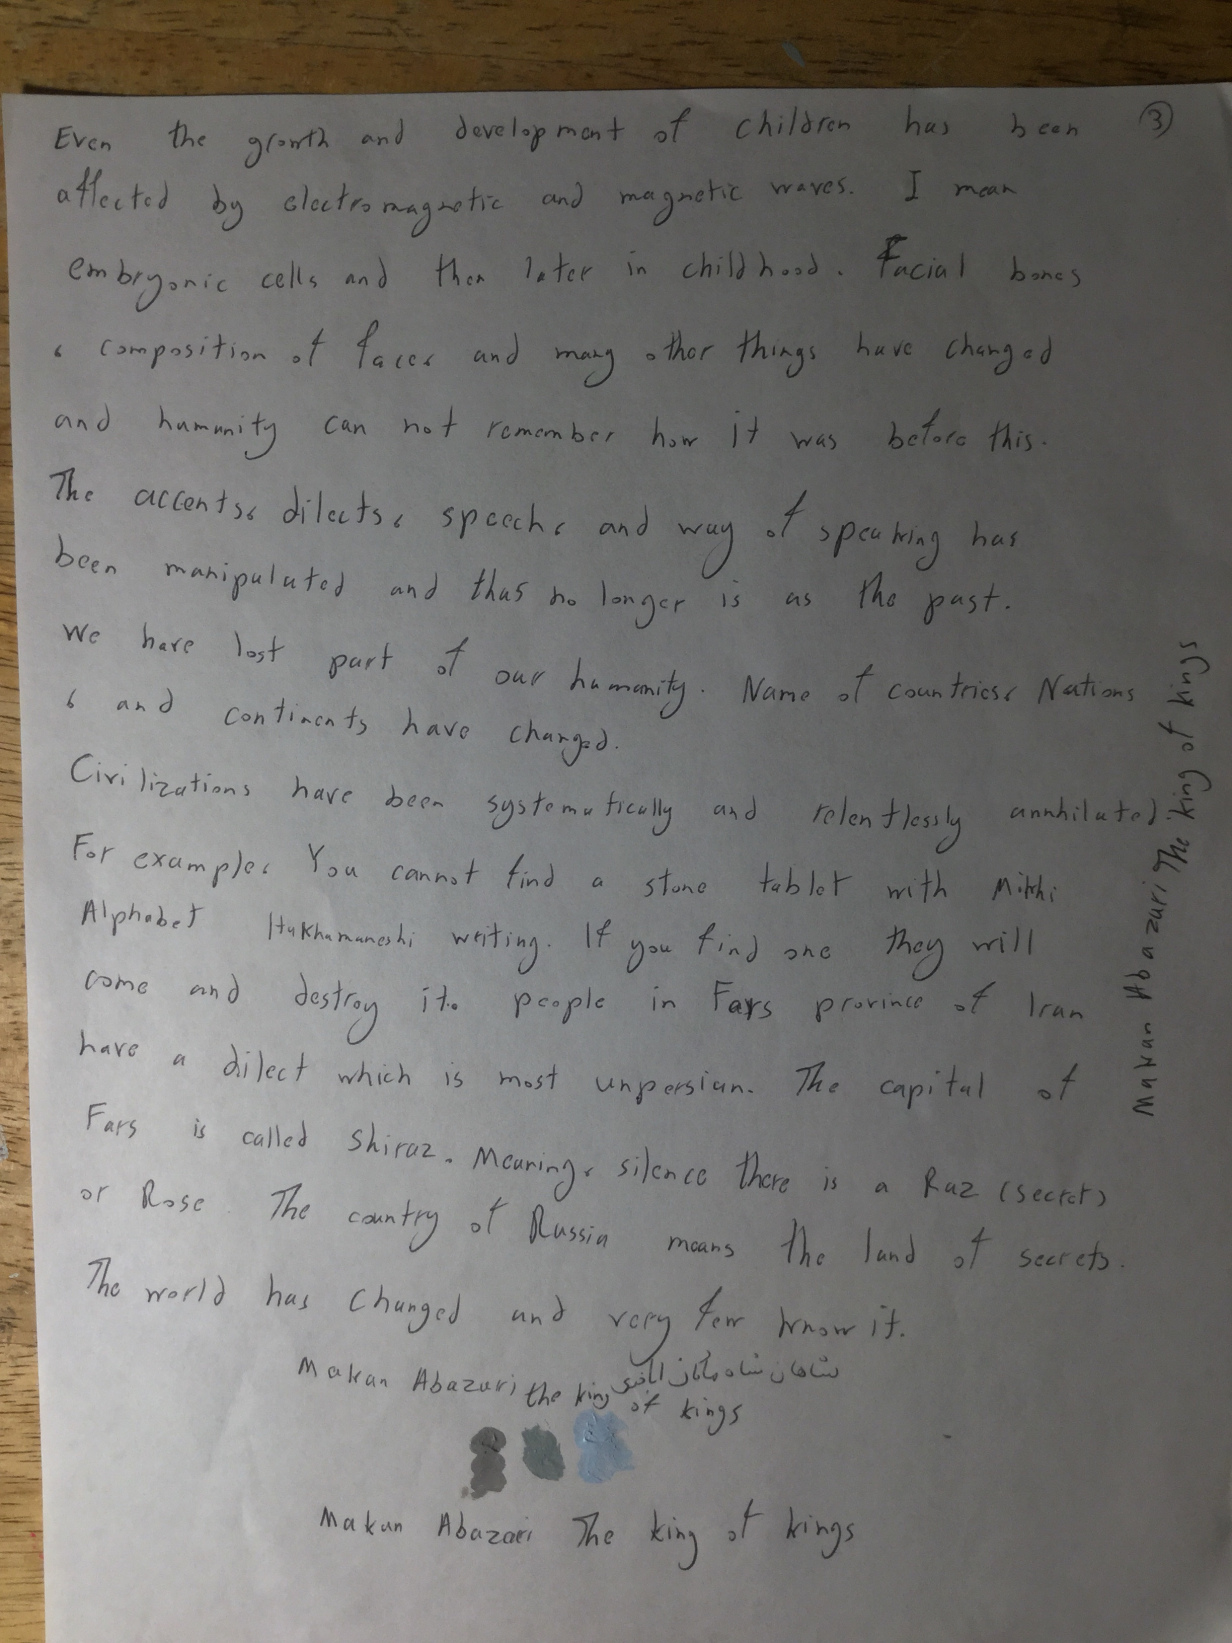 ③
Even the growth and development of children has been
affected by electromagnetic and magnetic waves. I mean
embryonic cells and then later in childhood. Facial bones
، composition of faces and many other things have changed
and humanity can not remember how it was before this.
The accents، dilects، speech، and way of speaking has
been manipulated and thus no longer is as the past.
We have lost part of our humanity. Name of countries، Nations
، and continents have changed.
Civilizations have been systematically and relentlessly annhilated.
For example، You cannot find a stone tablet with Mikhi
Alphabet Hakhamaneshi writing. If you find one they will
come and destroy it. people in Fars province of Iran
have a dilect which is most unpersian. The capital of
Fars is called Shiraz. Meaning، silence there is a Raz (secret)
or Rose. The country of Russia means the land of secrets.
The world has changed and very few know it.
شاهان شاه ماکان اباذری
Makan Abazari the king of kings
Makan Abazari The king of kings
Makan Abazari The king of kings